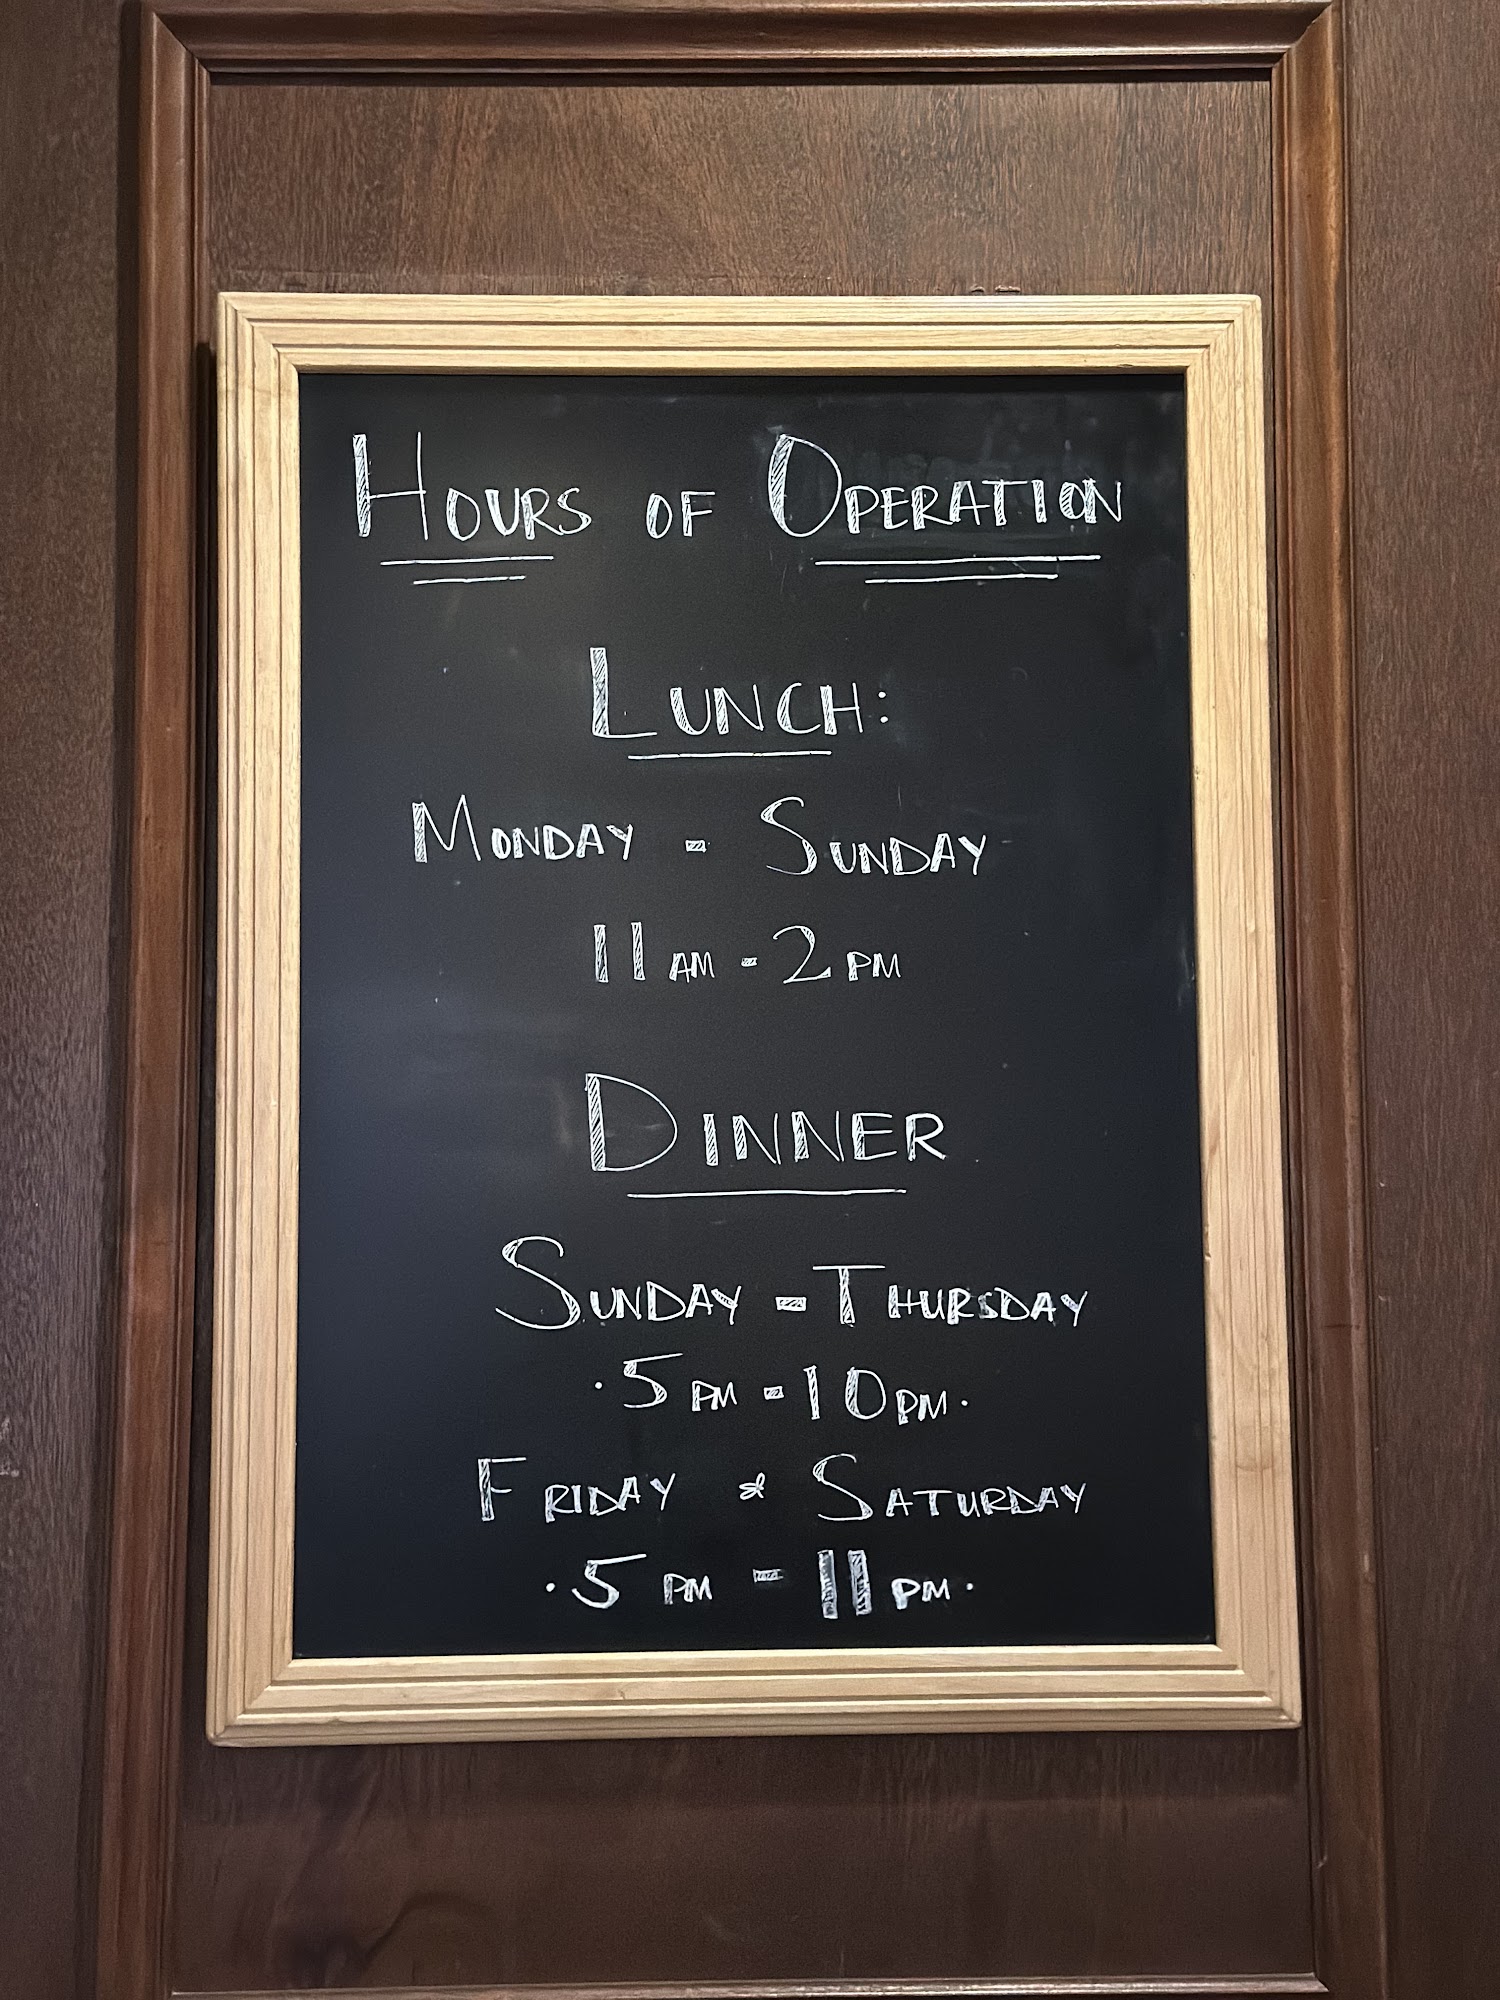 HOURS OF OPERATION
LUNCH:
MONDAY - SUNDAY
11AM - 2PM
DINNER
SUNDAY - THURSDAY
·5PM - 10PM·
FRIDAY & SATURDAY
·5PM - 11PM·